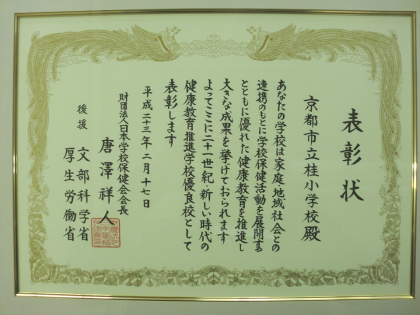 表彰状
京都市立桂小学校殿
あなたの学校は家庭・地域社会との
連携のもとに学校保健活動を展開する
とともに優れた健康教育を推進し
大きな成果を挙げておられます
よってここに二十一世紀・新しい時代の
健康教育推進学校優良校として
表彰します
平成二十三年二月十七日
財団法人日本学校保健会会長
唐澤祥人
後援
文部科学省
厚生労働省